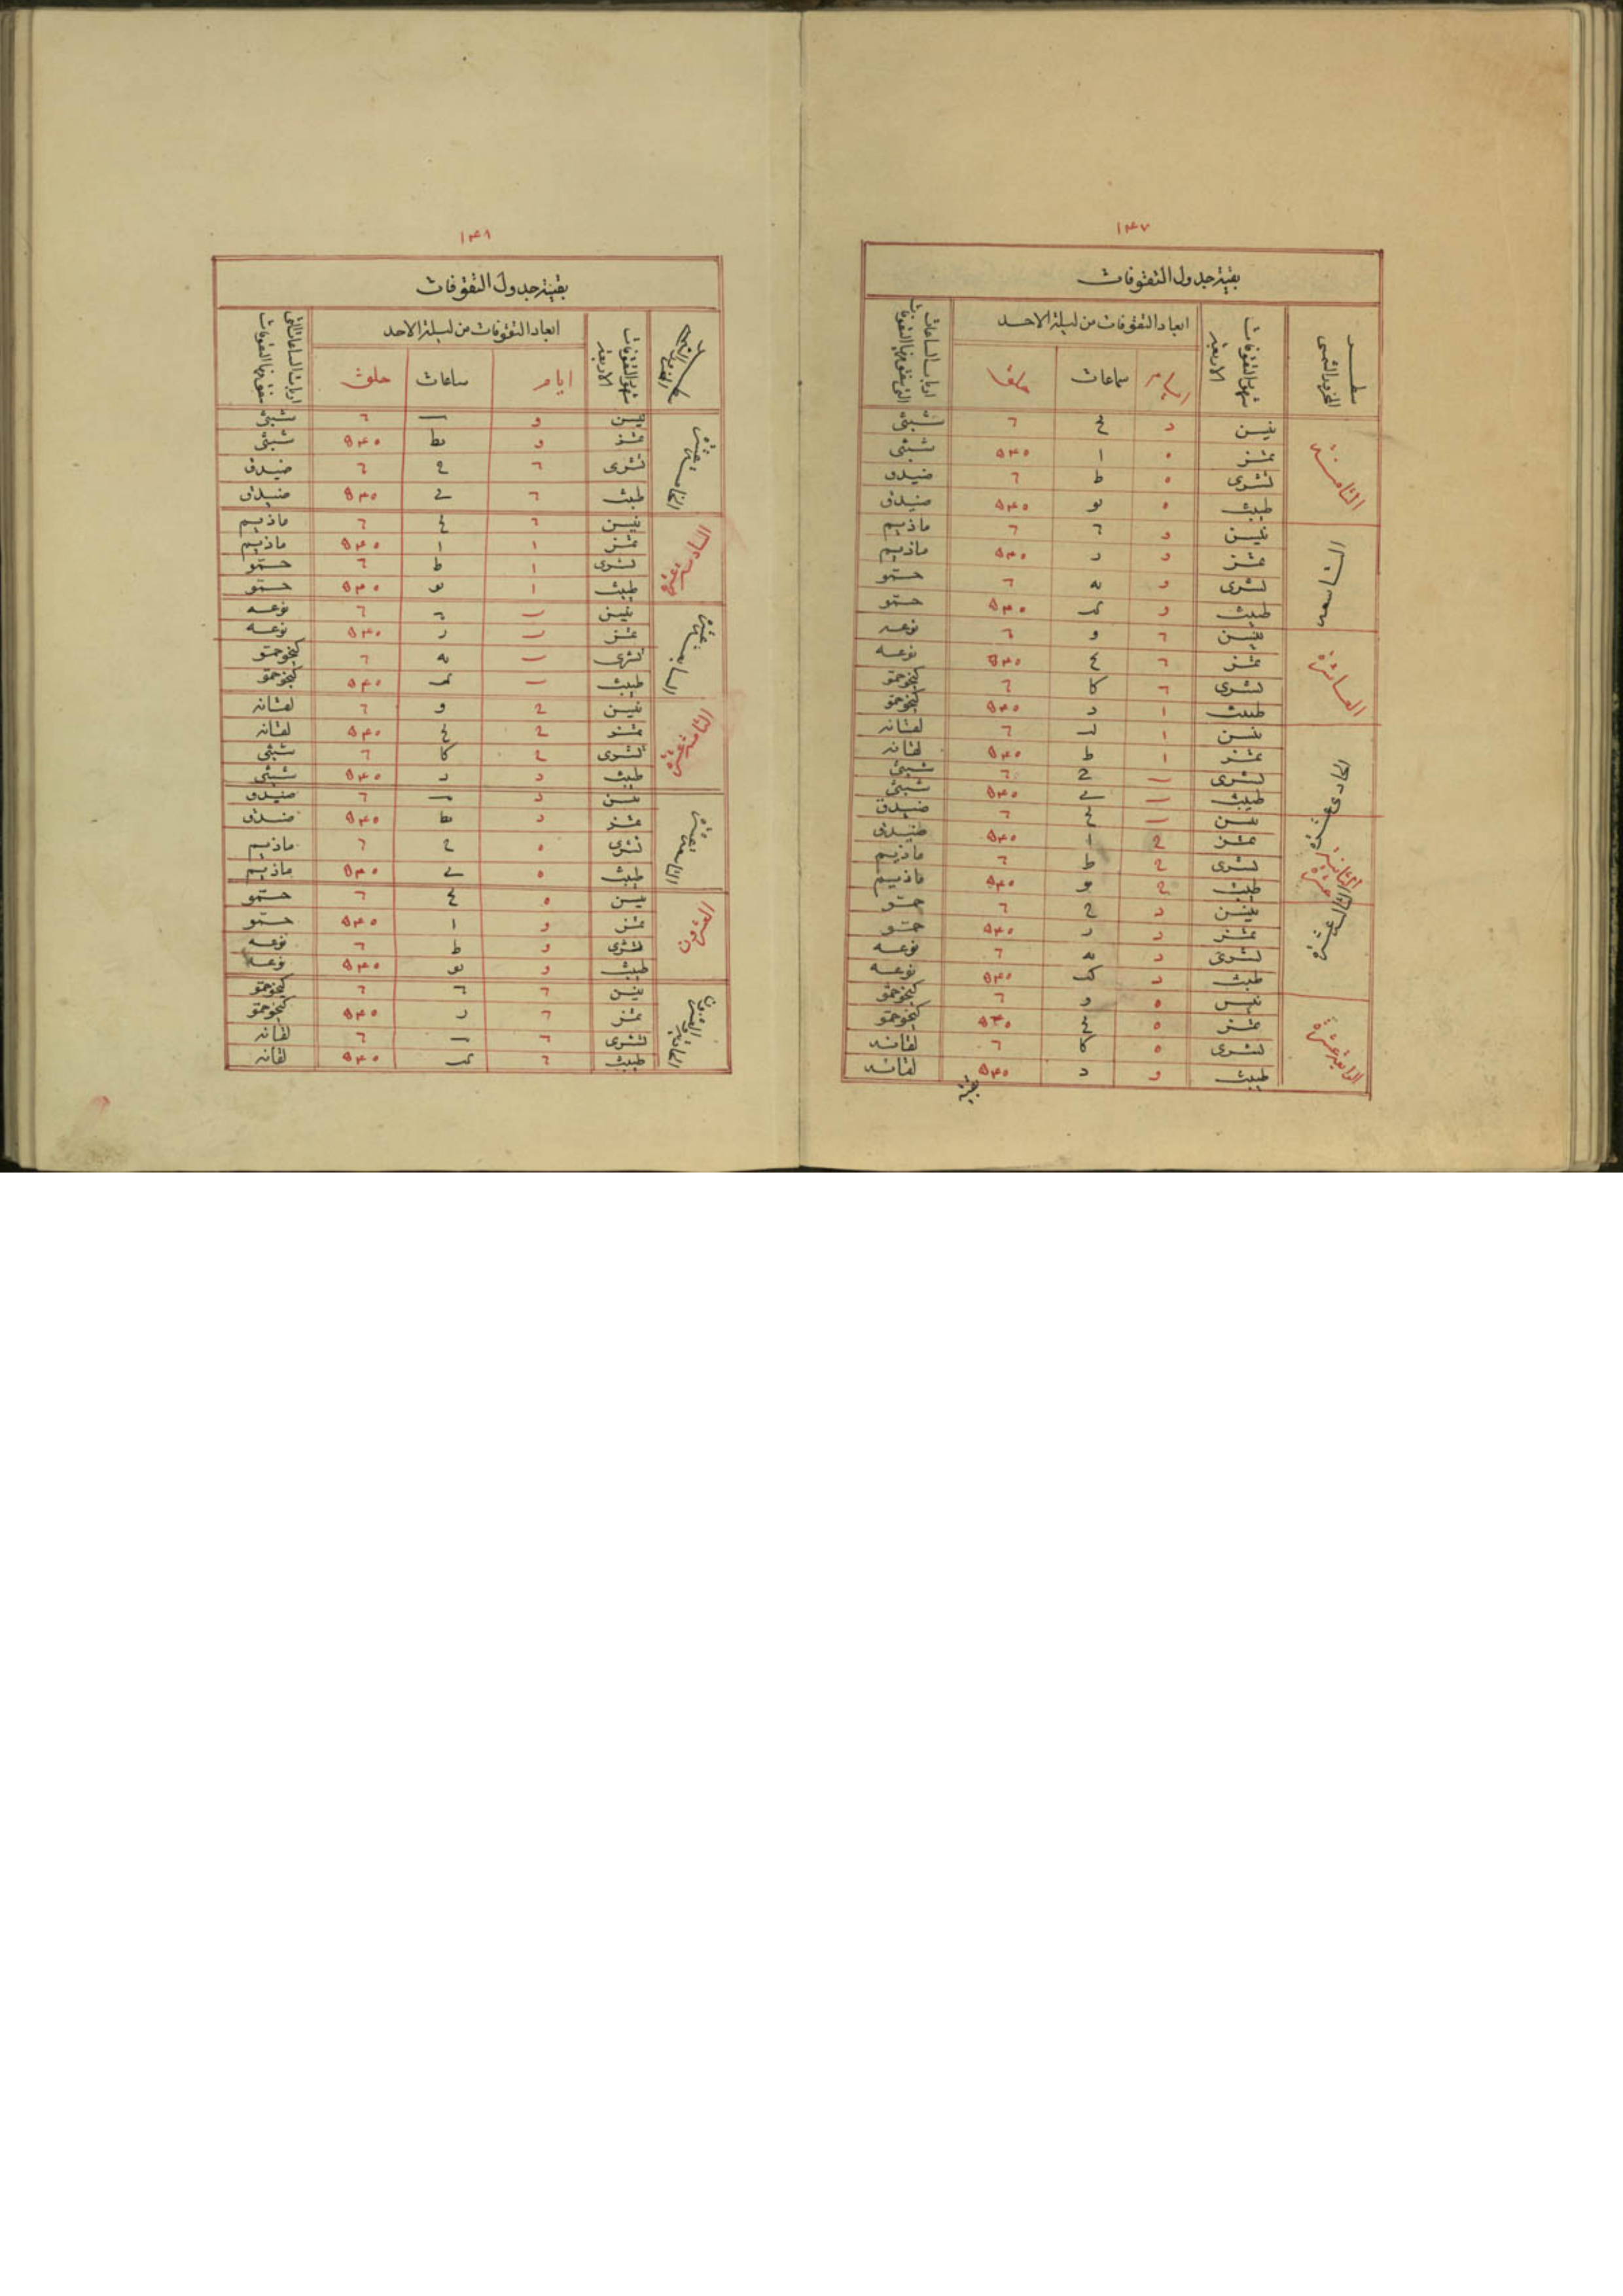 ١٤٧
بقية جدول التقوفات
سطر المحزور الشمسى
شهور التقوفات الاربعة
ابعاد التقوفات من ليلة الاحد
ارباب الساعات التى تتفق فيها التقوفات
ايام ساعات حلق
الثامنة
نيسن د ٦ شبثى
تمز ٥ ا ٥٤٠ شبثى
تشرى ٥ ط ٦ صيدق
طبث ٥ يو ٥٤٠ صيدق
التاسعه
نيسن و ٦ ماذيم
تمز و د ٥٤٠ ماذيم
تشرى و يه ٦ حمو
طبث و ك ٥٤٠ حمو
العاشرة
نيسن ٦ و ٦ نوعه
تمز ٦ ٥٤٠ نوعه
تشرى ٦ كا ٦ كخوحمو
طبث ا د ٥٤٠ كخوحمو
الحادى عشرة
نيسن ا ٦ لفانه
تمز ا ط ٥٤٠ لفانه
تشرى ب ح ٦ شبثى
طبث ب ٥٤٠ شبثى
الثانية عشرة
نيسن ب ٦ صيدق
تمز ح ا ٥٤٠ صيدق
تشرى ح ط ٦ ماذيم
طبث ح يو ٥٤٠ ماذيم
الثالثة عشرة
نيسن د ح ٦ حمو
تمز د د ٥٤٠ حمو
تشرى د يه ٦ نوعه
طبث د ك ٥٤٠ نوعه
الرابعة عشرة
نيسن ٥ و ٦ كخوحمو
تمز ٥ ٥٤٠ كخوحمو
تشرى ٥ كا ٦ لفانه
طبث و د ٥٤٠ لفانه
١٤٨
بقية جدول التقوفات
شهور التقوفات الاربعة
ابعاد التقوفات من ليلة الاحد
ارباب الساعات التى تتفق فيها التقوفات
ايام ساعات حلق
الخامسة عشرة
نيسن و ٦ شبثى
تمز و يط ٥٤٠ شبثى
تشرى ٦ ح ٦ صيدق
طبث ٦ ى ٥٤٠ صيدق
السادسة عشرة
نيسن ٦ ٦ ماذيم
تمز ا ا ٥٤٠ ماذيم
تشرى ا ط ٦ حمو
طبث ا يو ٥٤٠ حمو
السابعة عشرة
نيسن ب ٦ نوعه
تمز ب د ٥٤٠ نوعه
تشرى ب يه ٦ كخوحمو
طبث ب ك ٥٤٠ كخوحمو
الثامنة عشرة
نيسن ح و ٦ لفانه
تمز ح ٥٤٠ لفانه
تشرى ح كا ٦ شبثى
طبث د د ٥٤٠ شبثى
التاسعة عشرة
نيسن د ٦ صيدق
تمز د يط ٥٤٠ صيدق
تشرى ٥ ح ٦ ماذيم
طبث ٥ ى ٥٤٠ ماذيم
العشرون
نيسن ٥ ٦ حمو
تمز و ا ٥٤٠ حمو
تشرى و ط ٦ نوعه
طبث و يو ٥٤٠ نوعه
الحادية والعشرون
نيسن ٦ ٦ كخوحمو
تمز ٦ د ٥٤٠ كخوحمو
تشرى ٦ ٦ لفانه
طبث ٦ ك ٥٤٠ لفانه